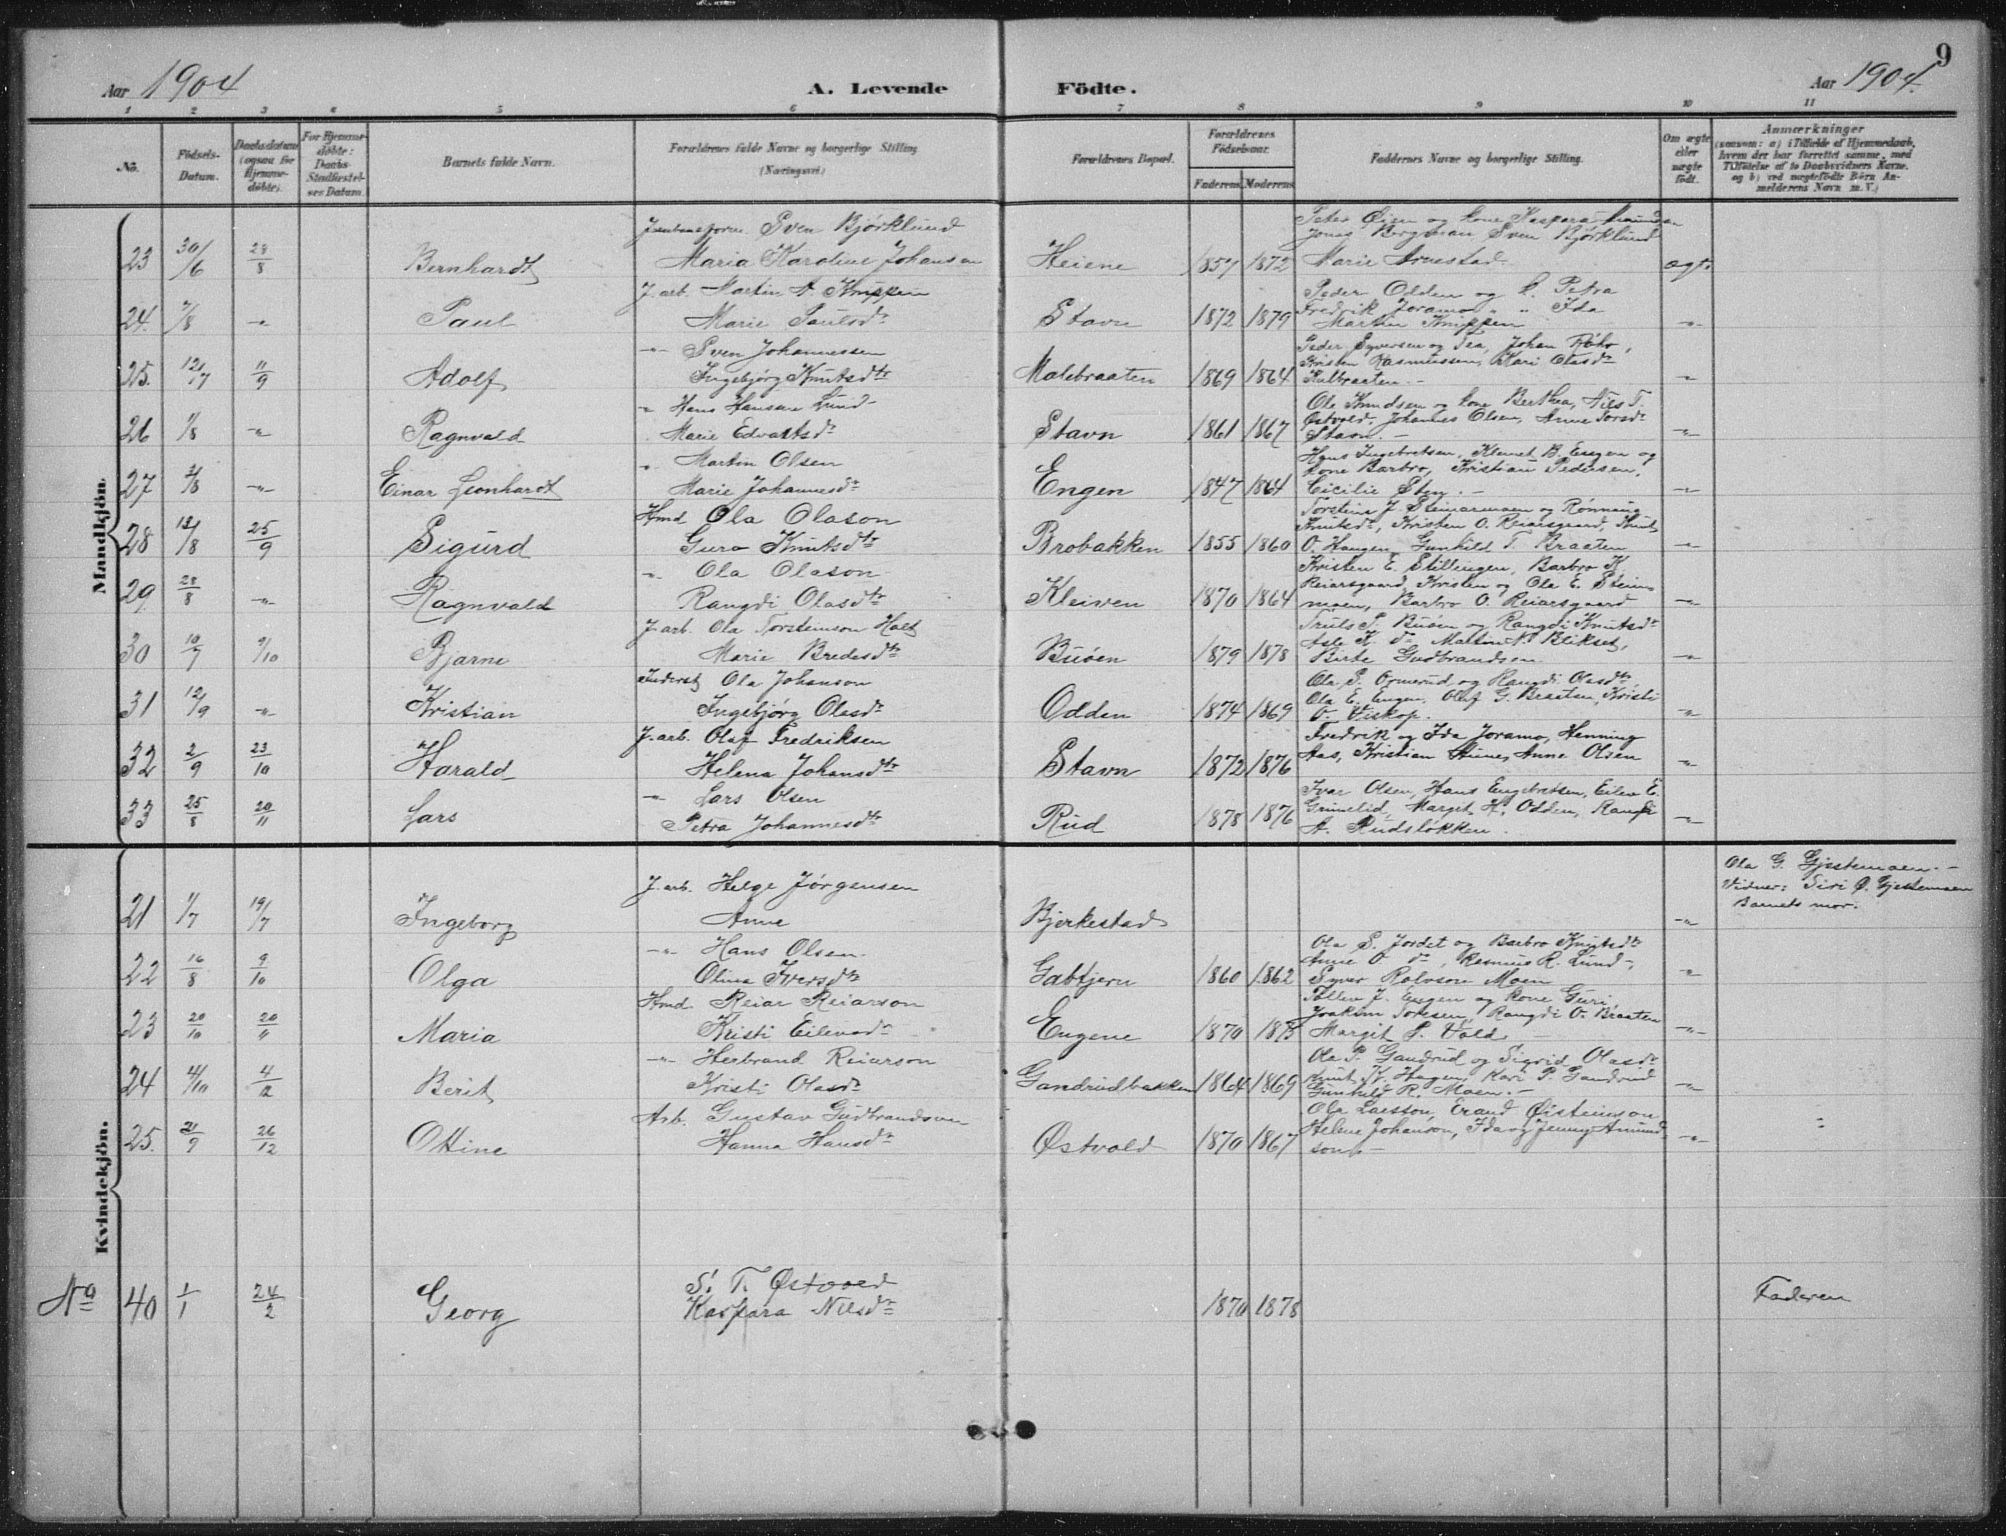 9
Aar 1904
A. Levende Födte.
Aar 1904.
1 2 3 4 5 6 7 8 9 10 11
No.
Födsels-
Datum.
Daabsdatum
(ogsaa for
Hjemme-
döbte).
For Hjemme-
döbte:
Daabs-
Stadfæstel-
ses Datum.
Barnets fulde Navn.
Forældrenes fulde Navne og borgerlige Stilling
(Næringsvei)
Forældrenes Bopæl.
Forældrenes
Födselsaar.
Faderens
Moderens
Faddernes Navne og borgerlige Stilling.
Om ægte
eller
uægte
født.
Anmærkninger
(saasom: a) i Tilfælde af Hjemmedaab,
hvem der har forrettet samme, med
Tilföielse af to Daabsvidners Navne.
og b) ved uægtefödte Börn An-
melderens Navn m. V.)
Mandkjön.
23 30/6 28/8 Bernhardt
Sven Bjørklund
Maria Karoline Johansen
Heiene 1857 1872
Peter Øien og kone Kaspara
Jonas Bergman, Sven Bjørklund
Marie Arnestad
ægt.
24. 7/8 -"- Paul
J. arb. Martin A Knippen
Marie Paulsdtr
Stavn 1872 1879
Peder Odden og k. Petra
Fredrik Joramo, " " Ida
Martin Knippen
-"-
25. 12/7 11/9 Adolf
-"- Sven Johannessen
Ingebjørg Knutsdtr
Malebraaten 1869 1864
Peder Syversen og Johan
Kristen Rasmussen, Kari Olasdtr
Kulbraaten. -
-"-
26 1/8 -"- Ragnvald
" Hans Hansen Lund
Marie Edvartsdtr
Stavn 1861 1867
Ole Knudsen og kone Berthea, Nils T.
Østvold, Johannes Olsen, Anne Torsdtr
Stavn. -
-"-
27 3/8 -"- Einar Leonhardt
" Martin Olsen
Marie Johannesdtr
Engen 1847 1864
Hans Ingebretsen, Klemet B. Engen og
kone Barbro, Kristian Pedersen,
Cicilie Sten. -
-"-
28 13/8 25/9 Sigurd
Hmd Ola Olason
Guro Knutsdtr
Brobakken 1855 1860
Torstein J. Steinarmoen og Rønnaug
Knutsdtr, Kristen O. Reiarsgaard, Knut
O. Haugen, Gunhild T. Braaten
-"-
29. 28/8 -"- Ragnvald
" Ola Olason
Rangdi Olasdtr
Kleiven 1870 1864
Kristen E. Stillingen, Barbro K.
Reiarsgaard, Kristen og Ola E. Stein-
moen, Barbro O. Reiarsgaard
-"-
30 10/7 9/10 Bjarne
J. arb. Ola Torsteinson Holt
Marie Bredesdtr
Buøen 1879 1878
Truls S. Buøen og Rangdi Knutsdtr
Asle K. dtr, Martin N. Blikset,
Birte Gudbrandsen.
-"-
31 12/9 -"- Kristian
Inderst Ola Johanson
Ingebjørg Olasdtr
Odden 1874 1869
Ola S. Ormerud og Rangdi Olasdtr,
Ola E. Engen, Oluf G. Braaten, Kristi
O. Viskop.
-"-
32 2/9 23/10 Harald
J. arb. Olaf Fredriksen
Helena Johansdtr
Stavn 1872 1876
Fredrik og Ida Joramo, Henning
Aas, Kristian Anne Olsen
-"-
33 25/8 20/11 Lars
-"- Lars Olsen
Petra Johannesdtr
Rud 1878 1876
Ivar Olsen, Hans Engebretsen, Eilev E.
Grimelid, Marget H. Odden, Rangdi
A. Rudsløkken.
-"-
Kvindekjön.
21 1/7 19/7 Ingeborg
J. arb. Helge Jørgensen
Anne
Bjerkestad
-"-
Ola G. Gjestemoen. -
Vidner: Siri Ø. Gjestemoen
Barnets mor.
22 16/8 9/10 Olga
-"- Hans Olsen.
Olina Iversdtr
Gabtjern 1860 1862
Ola S. Jordet og Barbro Knutsdtr
Anne O dtr, Rasmus R. Lund,
Syver Rolvson Moen
-"-
23 20/10 20/11 Maria
Hmd Reiar Reiarson
Kristi Eilevsdtr
Engene 1870 1873
Tollev J. Engen og kone Guri,
Joakim Toresen, Rangdi O. Braaten
Margit S. Vold
-"-
24 4/10 4/12 Berit
-"- Herbrand Reiarson
Kristi Olasdtr
Gandrudbakken 1864 1869
Ola P. Gandrud og Sigrid Olasdtr
Knut K. Hagen, Kari P. Gandrud
Gunhild R. Moen. -
-"-
25. 21/9 26/12 Ottine
Arb. Gustav Gudbrandsen
Hanna Hansdtr
Østvold 1870 1867
Ole Larsson, Erand Øisteinson
Helene Johanson, Ida og Jenny Amund-
son. -
-"-
No 40 1/1 24/2 Georg
S. T. Østvold
Kaspara Nilsdtr
1870 1878
Faderen